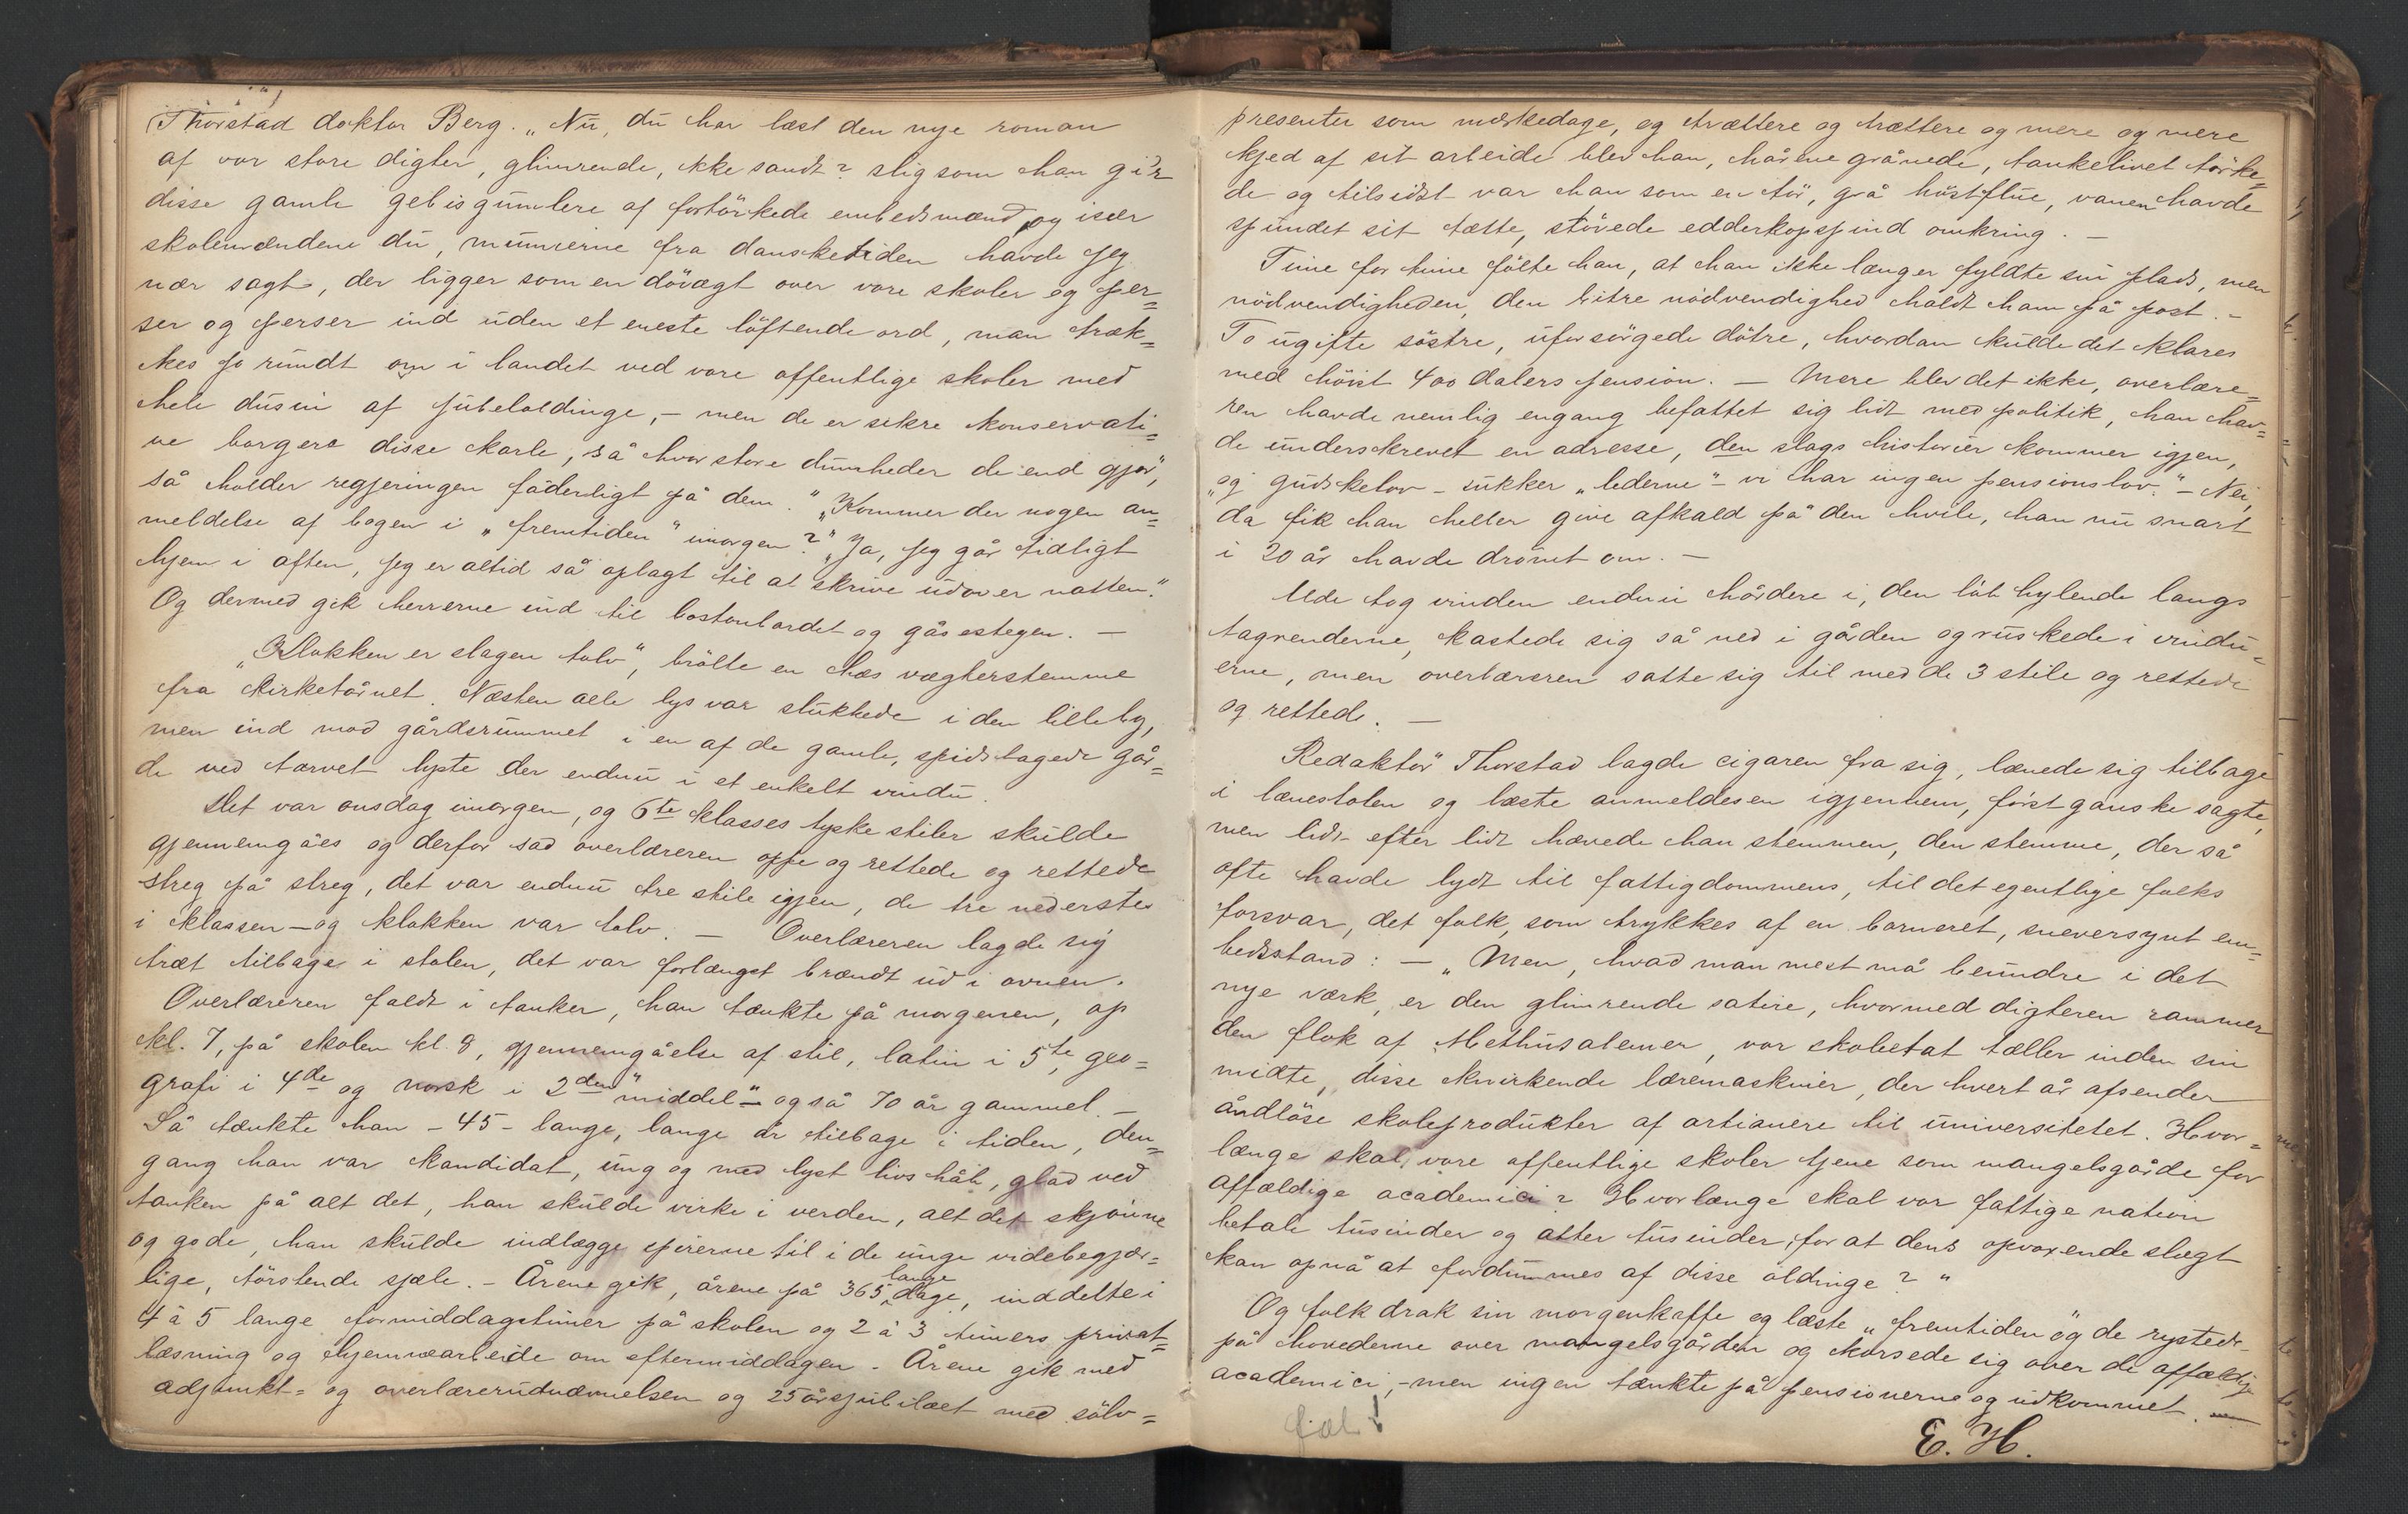 Thorstad doktor Berg. „Nu, du har læst den nye roman
af vor store digter, glimrende, ikke sandt? slig som han gir
disse gamle gebisgumlere af fortörkede embedsmænd, og især
skolemændene du, mumierne fra dansketiden havde jeg
nær sagt, der ligger som en dövægt over vore skoler og per=
ser og perser ind uden et eneste löftende ord, man træk=
kes jo rundt om i landet ved vore offentlige skoler med
hele dusin af jubeloldinge, – men de er sikre konservati=
ve borgere disse karle, så hvor store dumheder de end gjør,
så holder regjeringen faderligt på dem.“ „Kommer der nogen an=
meldelse af bogen i „fremtiden“ imorgen?“ „Ja, jeg går tidligt
hjem i aften, jeg er altid så oplagt til at skrive udover natten.“
Og dermed gik herrerne ind til bostonbordet og gåsestegen. —
„Klokken er slagen tolv“, brölte en hæs vægterstemme
fra kirketårnet. Næsten alle lys var slukkede i den lille by,
men ind mod gårdsrummet i en af de gamle, spidstagede går=
de ved torvet lyste der endnu i et enkelt vindu.
Det var onsdag imorgen, og 6te klasses tyske stiler skulde
gjennemgåes og derfor sad overlæreren oppe og rettede og rettede
streg på streg, det var endnu tre stile igjen, de tre nederste
i klassen – og klokken var tolv. — Overlæreren lagde sig
træt tilbage i stolen, det var forlængst brændt ud i ovnen.
Overlæreren faldt i tanker, han tænkte på morgenen, op
kl. 7, på skolen kl 8, gjennemgåelse af stil, latin i 5te, geo=
grafi i 4de og norsk i 2den „middel“ – også 70 år gammel. –
Så tænkte han – 45 – lange, lange år tilbage i tiden, den=
gang han var kandidat, ung og med lyst livshåb, glad ved
tanken på alt det, han skulde virke i verden, alt det skjönne
og gode, han skulde indlægge spirerne til i de unge videbegjær=
lige, törstende sjæle. – Årene gik, årene på 365 lange dage, inddelte i
4 à 5 lange formiddagstimer på skolen og 2 à 3 timers privat=
læsning og hjemmearbeide om eftermiddagen. Årene gik med
adjunkt= og overlærerudnævnelsen og 25årsjubilæet med sölv=
presenter som mærkedage, og trættere og trættere og mere og mere
kjed af sit arbeide blev han, hårene grånede, tankelivet törke=
de og tilsidst var han som en tör, grå höstflue, vanen havde
spundet sit tætte, stövede edderkopspind omkring. –
Time for time fölte han, at han ikke længer fyldte sin plads, men
nödvendigheden, den bitre nödvendighed holdt ham på post. –
To ugifte söstre, uforsörgede dötre, hvordan skulde det klares
med höist 400 dalers pension. — Mere blev det ikke, overlære=
ren havde nemlig engang befattet sig lidt med politik, han hav=
de underskrevet en adresse, den slags historier kommer igjen,
„og gudskelov – sukker „lederne“ – vi har ingen pensionslov.“ – Nei,
da fik han heller give afkald på den hvile, han nu snart
i 20 år havde drömt om. —
Ude tog vinden endnu hårdere i, den löb hylende langs
tagrenderne, kastede sig så ned i gården og ruskede i vindu=
erne, men overlæreren satte sig til med de 3 stile og rettede
og rettede. —
Redaktör Thorstad lagde cigaren fra sig, lænede sig tilbage
i lænestolen og læste anmeldesen igjennem, först ganske sagte,
men lidt efter lidt hævede han stemmen, den stemme, der så
ofte havde lydt til fattigdommens, til det egentlige folks
forsvar, det folk, som trykkes af en borneret, sneversynt em=
bedsstand: — „Men, hvad man mest må beundre i det
nye værk, er den glimrende satire, hvormed digteren rammer
den flok af Methusalemer, vor skoletat tæller inden sin
midte, disse knirkende læremaskiner, der hvert år afsender
åndlöse skoleprodukter af artianere til universitetet. Hvor=
længe skal vore offentlige skoler tjene som mangelsgårde for
affældige academici? Hvorlænge skal vor fattige nation
betale tusinder og atter tusinder, for at dens opvoxende slægt
kan opnå at fordummes af disse oldinge?“
Og folk drak sin morgenkaffe og læste „fremtiden“ og de rystede
på hovederne over mangelsgården og korsede sig over de affældige
academici, – men ingen tænkte på pensionerne og udkommet. —
E. H.